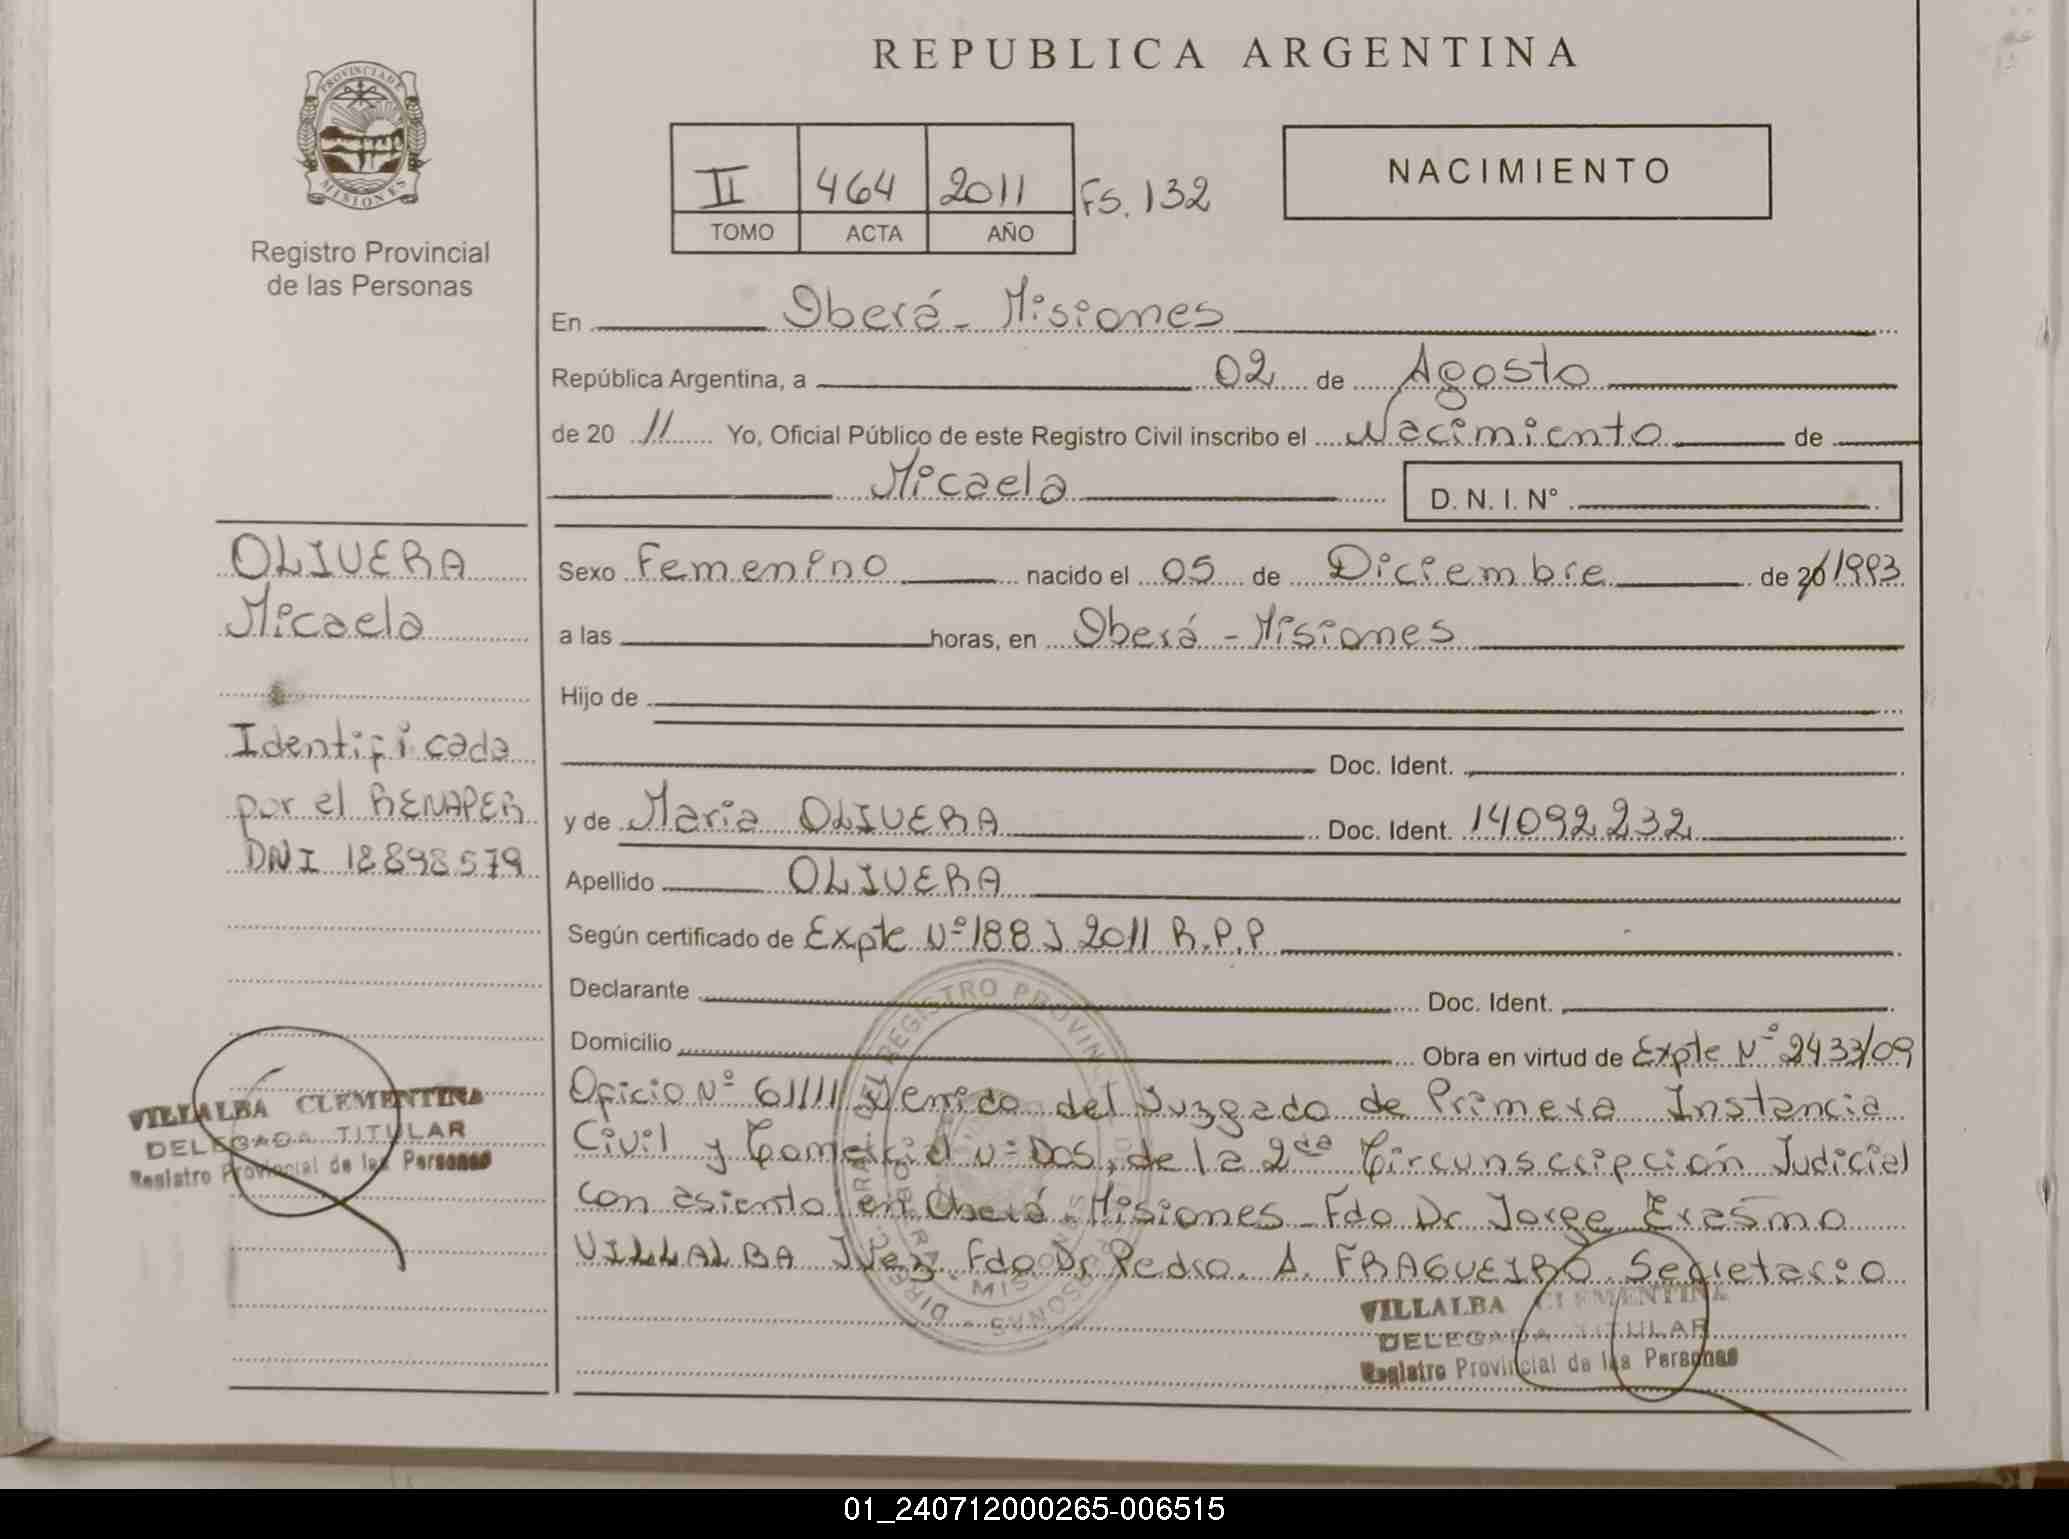 REPUBLICA ARGENTINA
PROVINCIA DE MISIONES
Registro Provincial
de las Personas
II 464 2011 Fs. 132
TOMO ACTA AÑO
NACIMIENTO
En Oberá - Misiones
República Argentina, a 02 de Agosto
de 20 11 Yo, Oficial Público de este Registro Civil inscribo el Nacimiento de
Micaela D. N. I. N°
OLIVERA
Micaela
Identificada
por el RENAPER
DNI 18898579
VILLALBA CLEMENTINA
DELEGADA TITULAR
Registro Provincial de las Personas
Sexo Femenino nacido el 05 de Diciembre de 20 1993
a las horas, en Oberá - Misiones
Hijo de
Doc. Ident.
y de Maria OLIVERA Doc. Ident. 14092232
Apellido OLIVERA
Según certificado de Expte Nº 188 J 2011 R.P.P
Declarante Doc. Ident.
Domicilio Obra en virtud de Expte Nº 2433/09
Oficio Nº 611/11 Venido del Juzgado de Primera Instancia
Civil y Comercial Nº Dos, de la 2da Circunscripción Judicial
con asiento en Oberá Misiones - Fdo Dr Jorge Erasmo
VILLALBA Juez Fdo Dr Pedro A. FRAGUEIRO Secretario
VILLALBA CLEMENTINA
DELEGADA TITULAR
Registro Provincial de las Personas
01_240712000265-006515